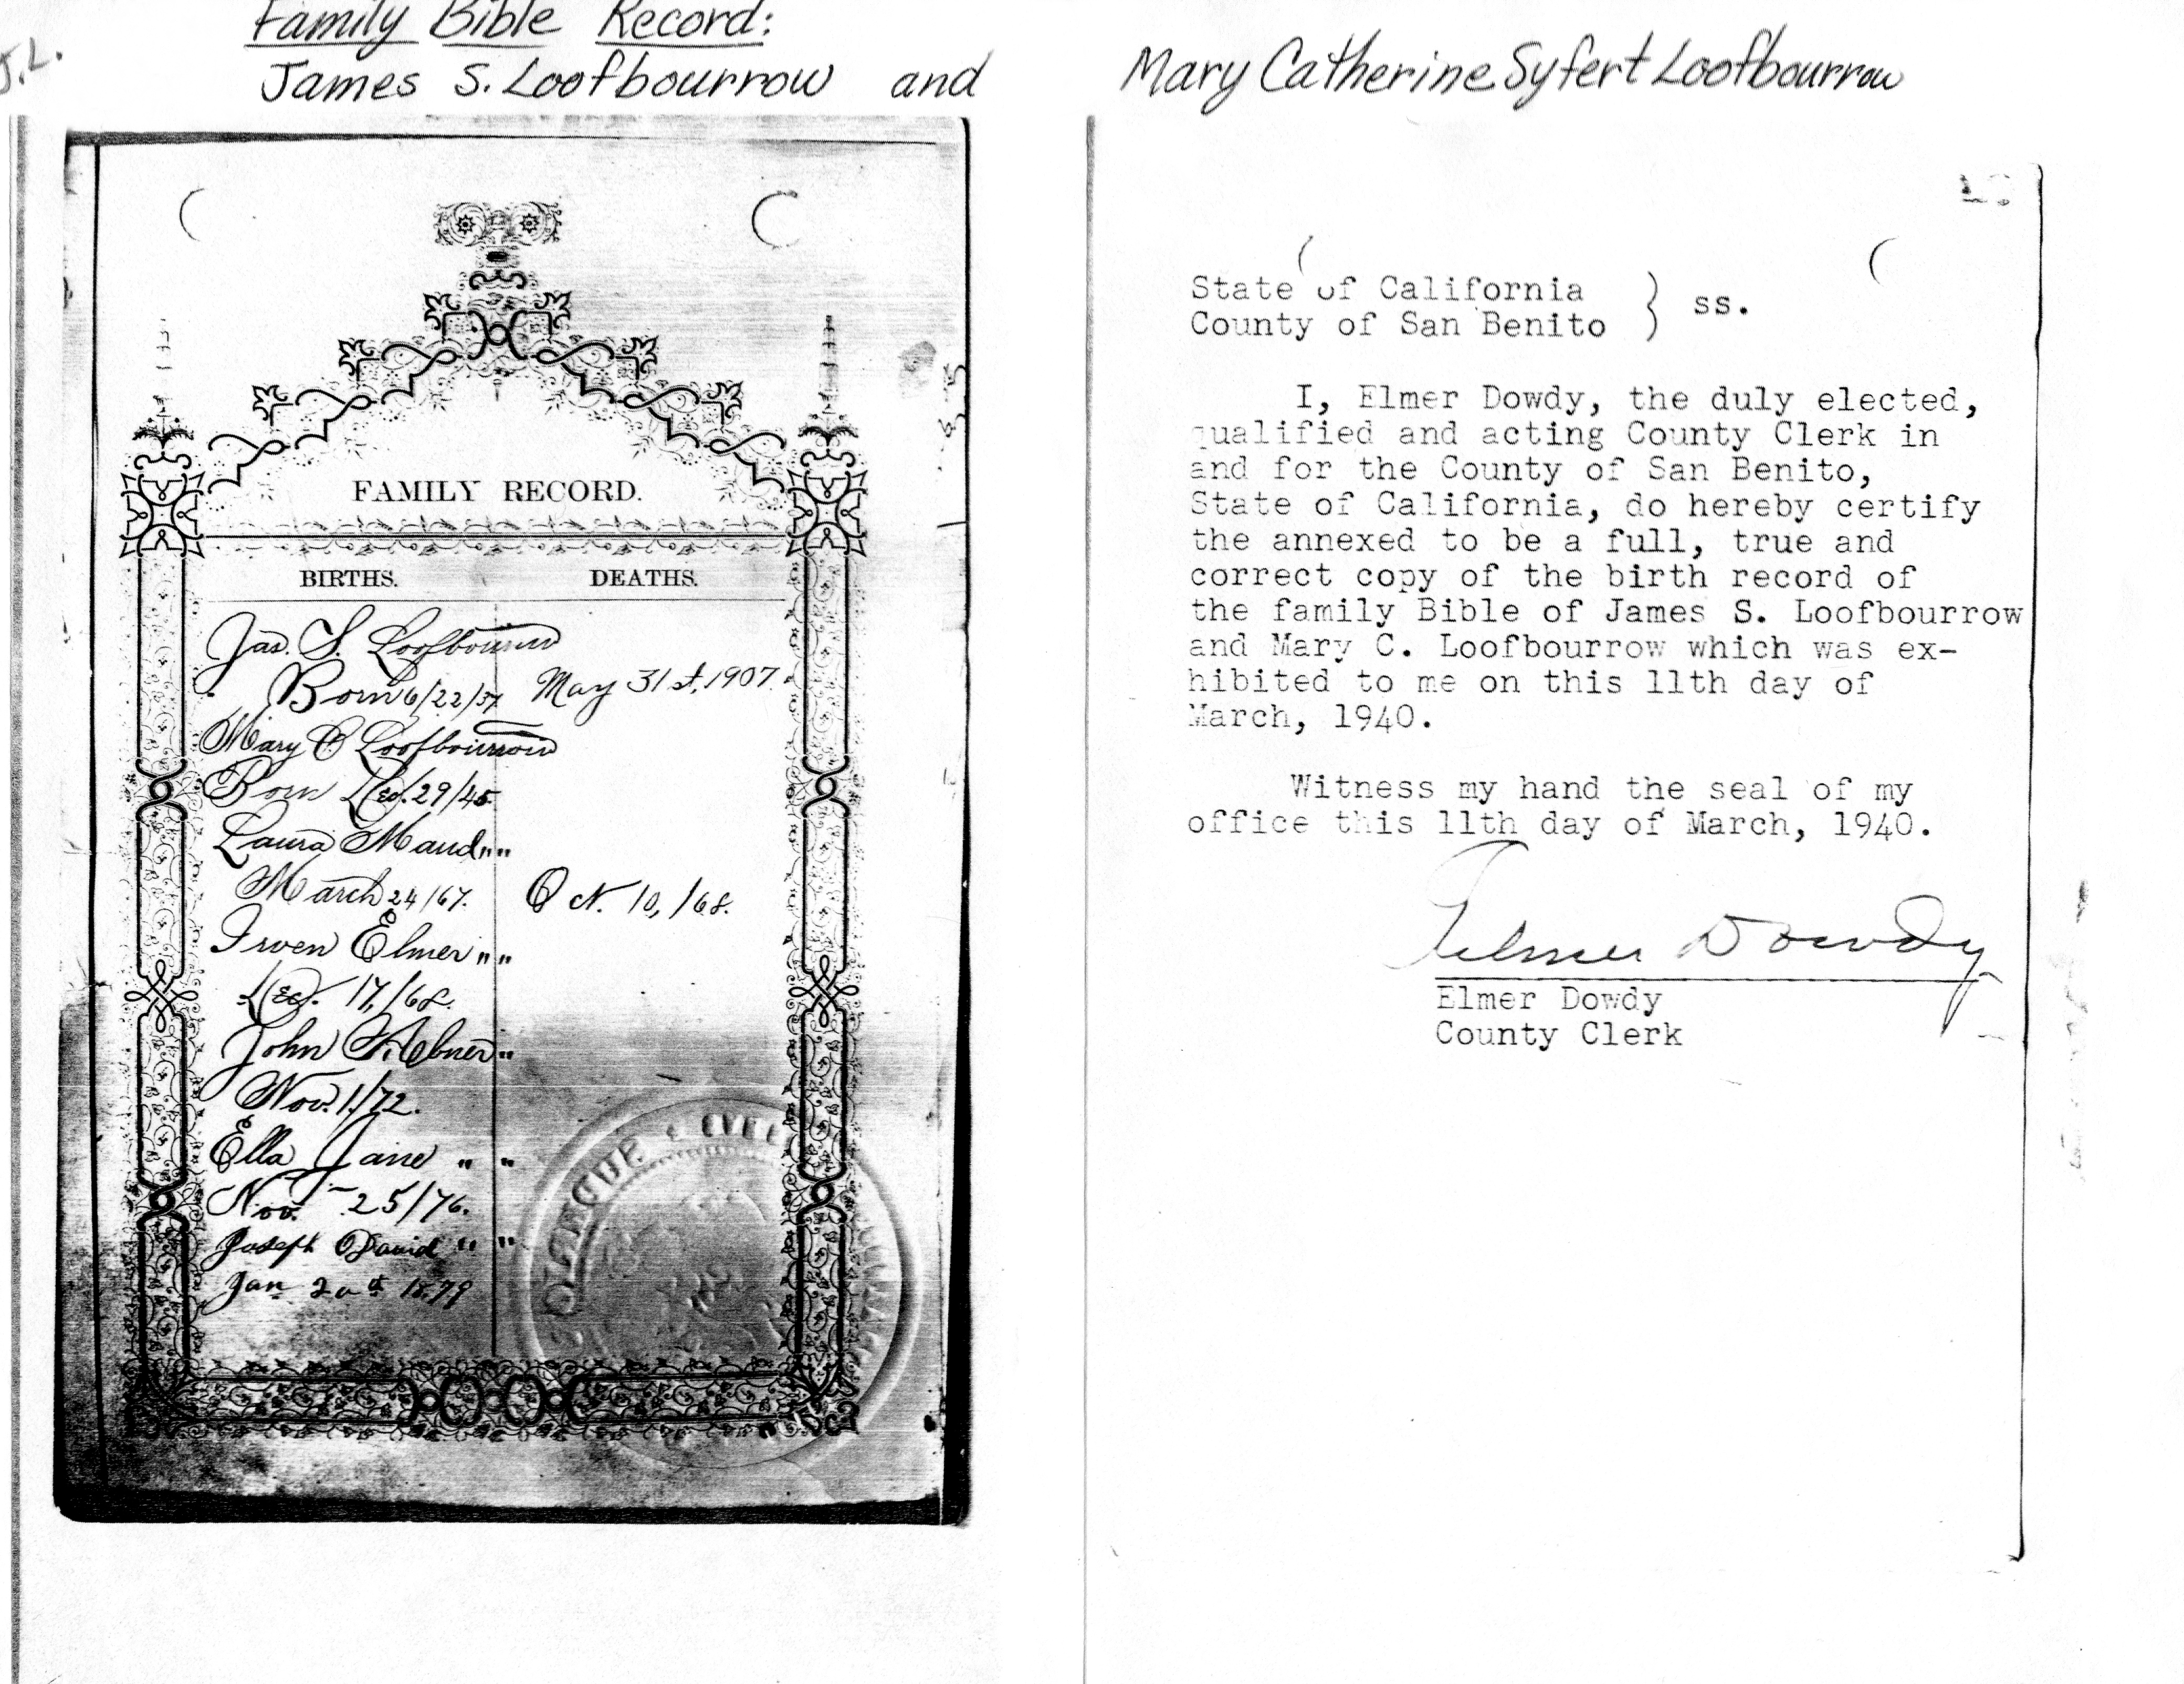 J.L.
Family Bible Record:
James S. Loofbourrow and
Mary Catherine Syfert Loofbourrow
FAMILY RECORD.
BIRTHS. DEATHS.
Jas. S. Loofbourrow
Born 6/22/37 May 31st, 1907.
Mary C Loofbourrow
Born Dec. 29/45
Laura Maud " "
March 24/67. Oct. 10, /68.
Irven Elmer " "
Dec. 17, /68.
John Abner "
Nov. 1./72.
Ella Jane " "
Nov. 25/76.
Joseph David " "
Jan 20th 1879
State of California
County of San Benito } ss.
I, Elmer Dowdy, the duly elected,
qualified and acting County Clerk in
and for the County of San Benito,
State of California, do hereby certify
the annexed to be a full, true and
correct copy of the birth record of
the family Bible of James S. Loofbourrow
and Mary C. Loofbourrow which was ex-
hibited to me on this 11th day of
March, 1940.
Witness my hand the seal of my
office this 11th day of March, 1940.
Elmer Dowdy
Elmer Dowdy
County Clerk